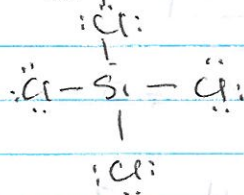 :Cl:
:Cl–Si–Cl:
:Cl: